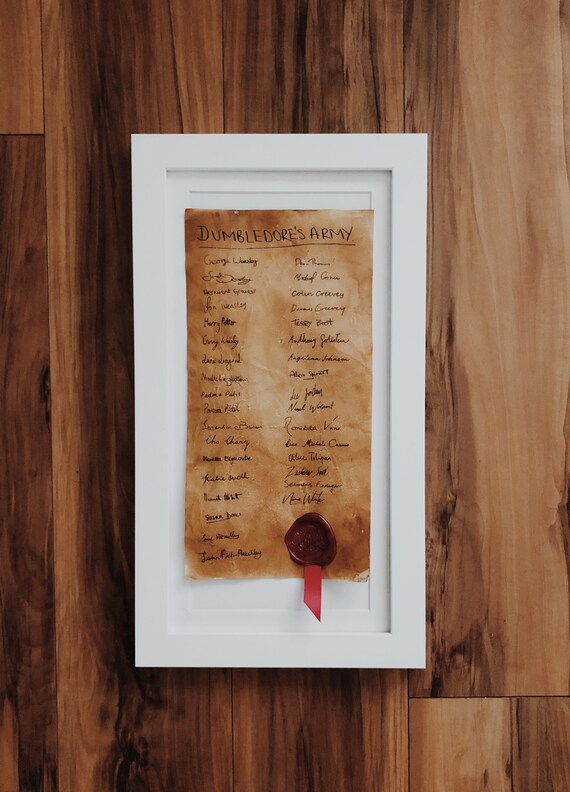 DUMBLEDORE'S ARMY.
George Weasley
Hermione Granger
Ron Weasley
Harry Potter
Ginny
Luna Lovegood
Neville Longbottom
Padma Patil
Parvati Patil
Lavender Brown
Cho Chang
Marietta Edgecombe
Katie Bell
Hannah Abbott
Susan Bones
Justin Finch-Fletchley
Dean Thomas
Michael Corner
Colin Creevey
Dennis Creevey
TERRY Boot
Anthony Goldstein
Angelina Johnson
Alicia Spinnet
Lee Jordan
Nigel
Romilda Vane
Zacharias Smith
Seamus Finnigan